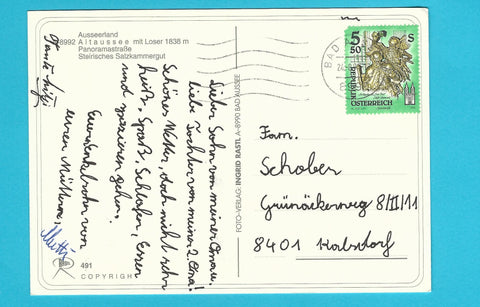 Ausseerland
8992 Altaussee mit Loser 1838 m
Panoramastraße
Steirisches Salzkammergut
Lieber Sohn von meiner Oma u.
liebe Tochter von meiner 2. Oma!
Schönes Wetter, doch nicht sehr
heiß. Spaß, Schlafen, Essen
und spazieren gehen.
Eure
von
Mutti
491
COPYRIGHT
FOTO-VERLAG: INGRID RASTL A-8990 BAD AUSSEE
BAD
5 50 S
REPUBLIK
ÖSTERREICH
Fam.
Schober
Grünäckerweg 8/II/11
8401 Kalsdorf